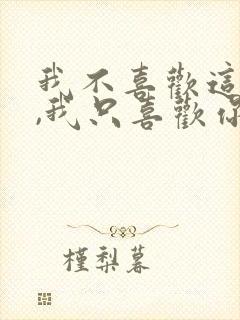 我不喜歡這
,我只喜歡你
槿梨暮